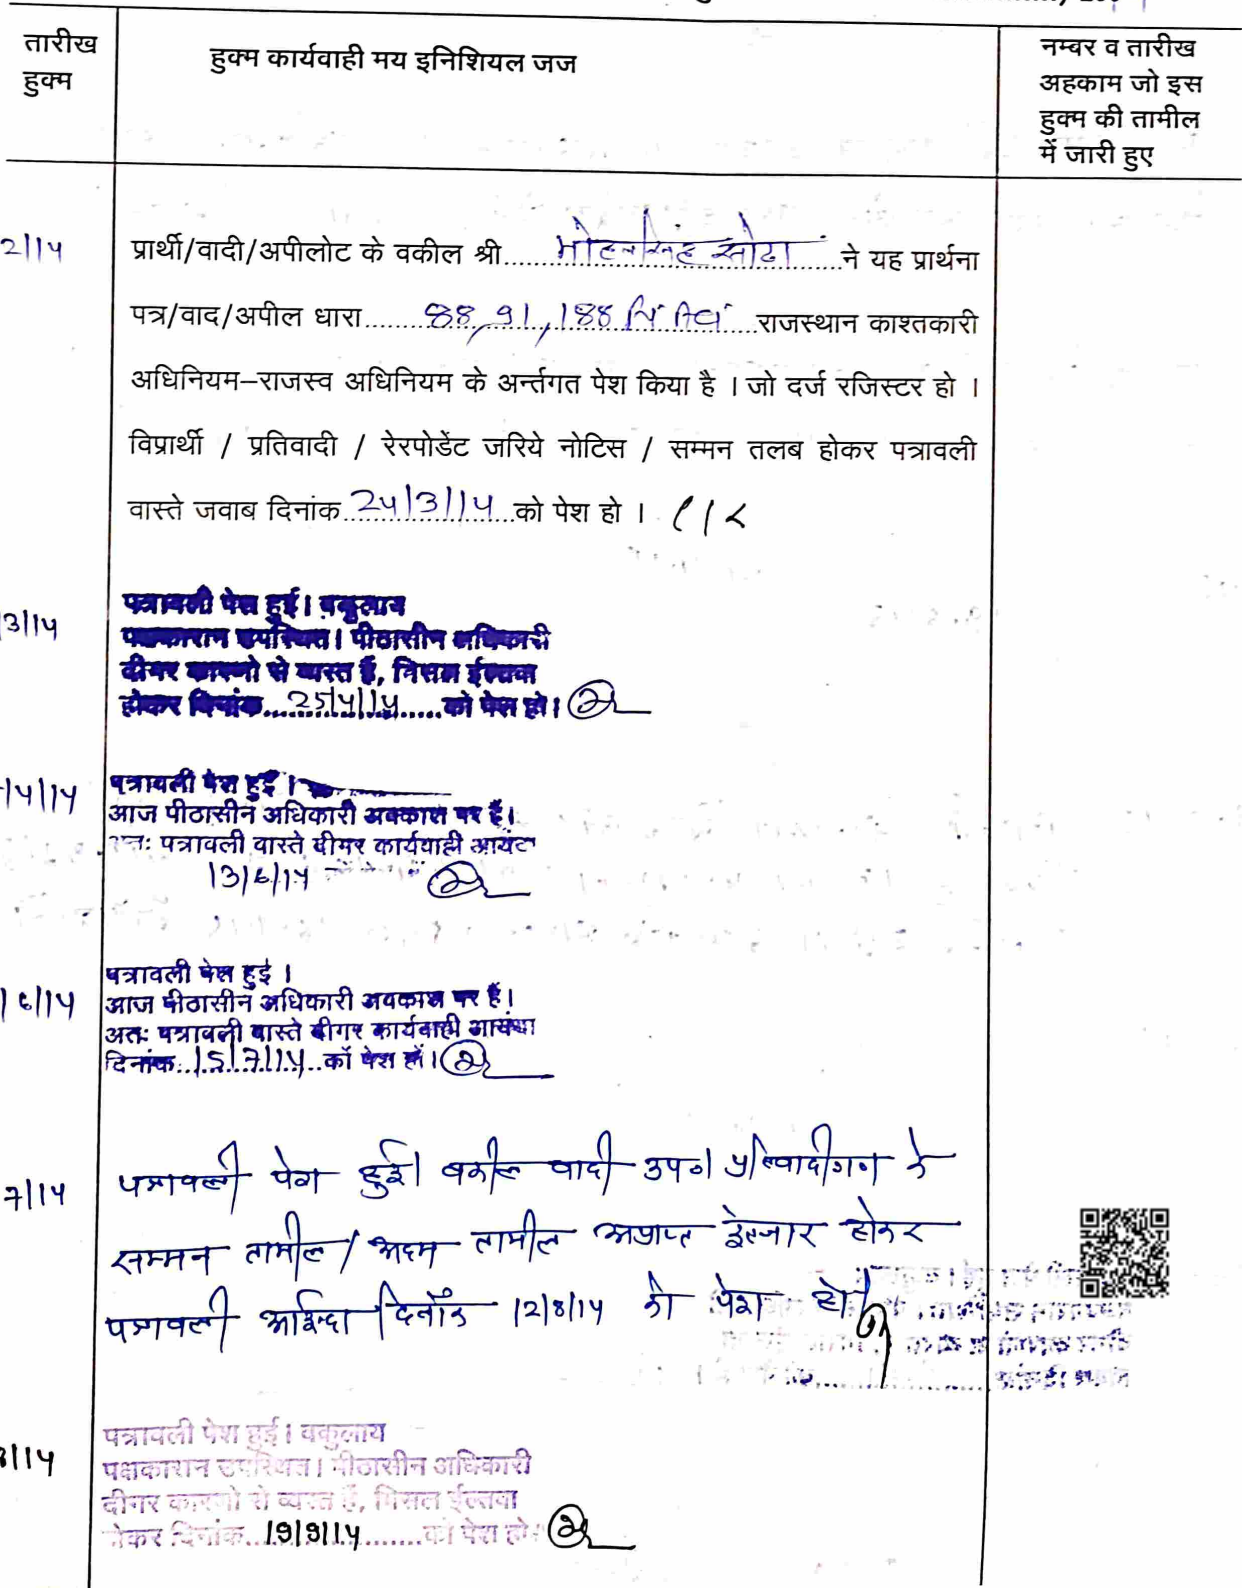 तारीख
हुक्म
हुक्म कार्यवाही मय इनिशियल जज
नम्बर व तारीख
अहकाम जो इस
हुक्म की तामील
में जारी हुए
2/14
प्रार्थी/वादी/अपीलोट के वकील श्री.....मोहनसिंह सोढा.....ने यह प्रार्थना
पत्र/वाद/अपील धारा.....88,91,188.....राजस्थान काश्तकारी
अधिनियम–राजस्व अधिनियम के अर्न्तगत पेश किया है । जो दर्ज रजिस्टर हो ।
विप्रार्थी / प्रतिवादी / रेरपोडेंट जरिये नोटिस / सम्मन तलब होकर पत्रावली
वास्ते जवाब दिनांक..24/3/14..को पेश हो ।
3/14
पत्रावली पेश हुई। वकुलाय
पक्षकारान उपस्थित। पीठासीन अधिकारी
दीगर कारणो से व्यस्त हैं, मिसल ईल्तवा
होकर दिनांक....25/4/14.....को पेश हो।
/4/14
पत्रावली पेश हुई ।
आज पीठासीन अधिकारी अवकाश पर हैं।
अतः पत्रावली वास्ते दीगर कार्यवाही
13/6/14
/6/14
पत्रावली पेश हुई ।
आज पीठासीन अधिकारी अवकाश पर हैं।
अतः पत्रावली वास्ते दीगर कार्यवाही आयंदा
दिनांक..15/7/14..को पेश हो।
7/14
पत्रावली पेश हुई। वकील वादी उप० प्रतिवादीगण के
सम्मन तामील / अदम तामील अप्राप्त इन्तजार होकर
पत्रावली आईन्दा दिनाँक 12/8/14 को पेश हो।
8/14
पत्रावली पेश हुई। वकुलाय
पक्षकारान उपस्थित। पीठासीन अधिकारी
दीगर कारणो से व्यस्त हैं, मिसल ईल्तवा
होकर दिनांक...19/9/14.......को पेश हो।